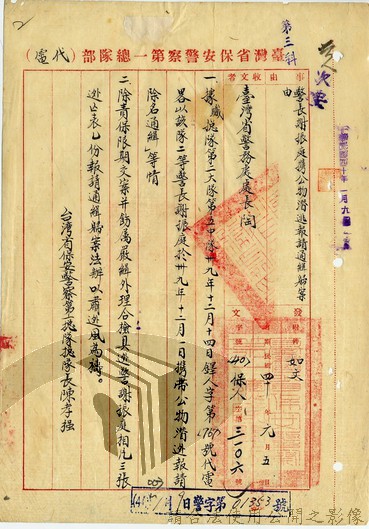 臺灣省保安警察第一總隊部（代電）
第三科
事由
警長謝振庭攜公物潛逃報請通緝歸案
收文者
臺灣省警務處處長陶
發
附件 如文
四十年元月五日
保人
三一〇六號
一、據威 隊第三大隊第五中隊 九年十二月十四日鐸人字第 代電
畧以該隊二等警長謝振庭於卅九年十二月 日携帶公物潛逃報請
除名通緝」等情
二、除責保限期交案并飭屬嚴緝外理合檢具逃警謝振庭相片三張
逃亡表乙份報請通緝歸案法辦以肅逃風為禱。
台灣省保安警察第一總隊總隊長陳孝強
日警字第01353號
請合法使用公開之影像